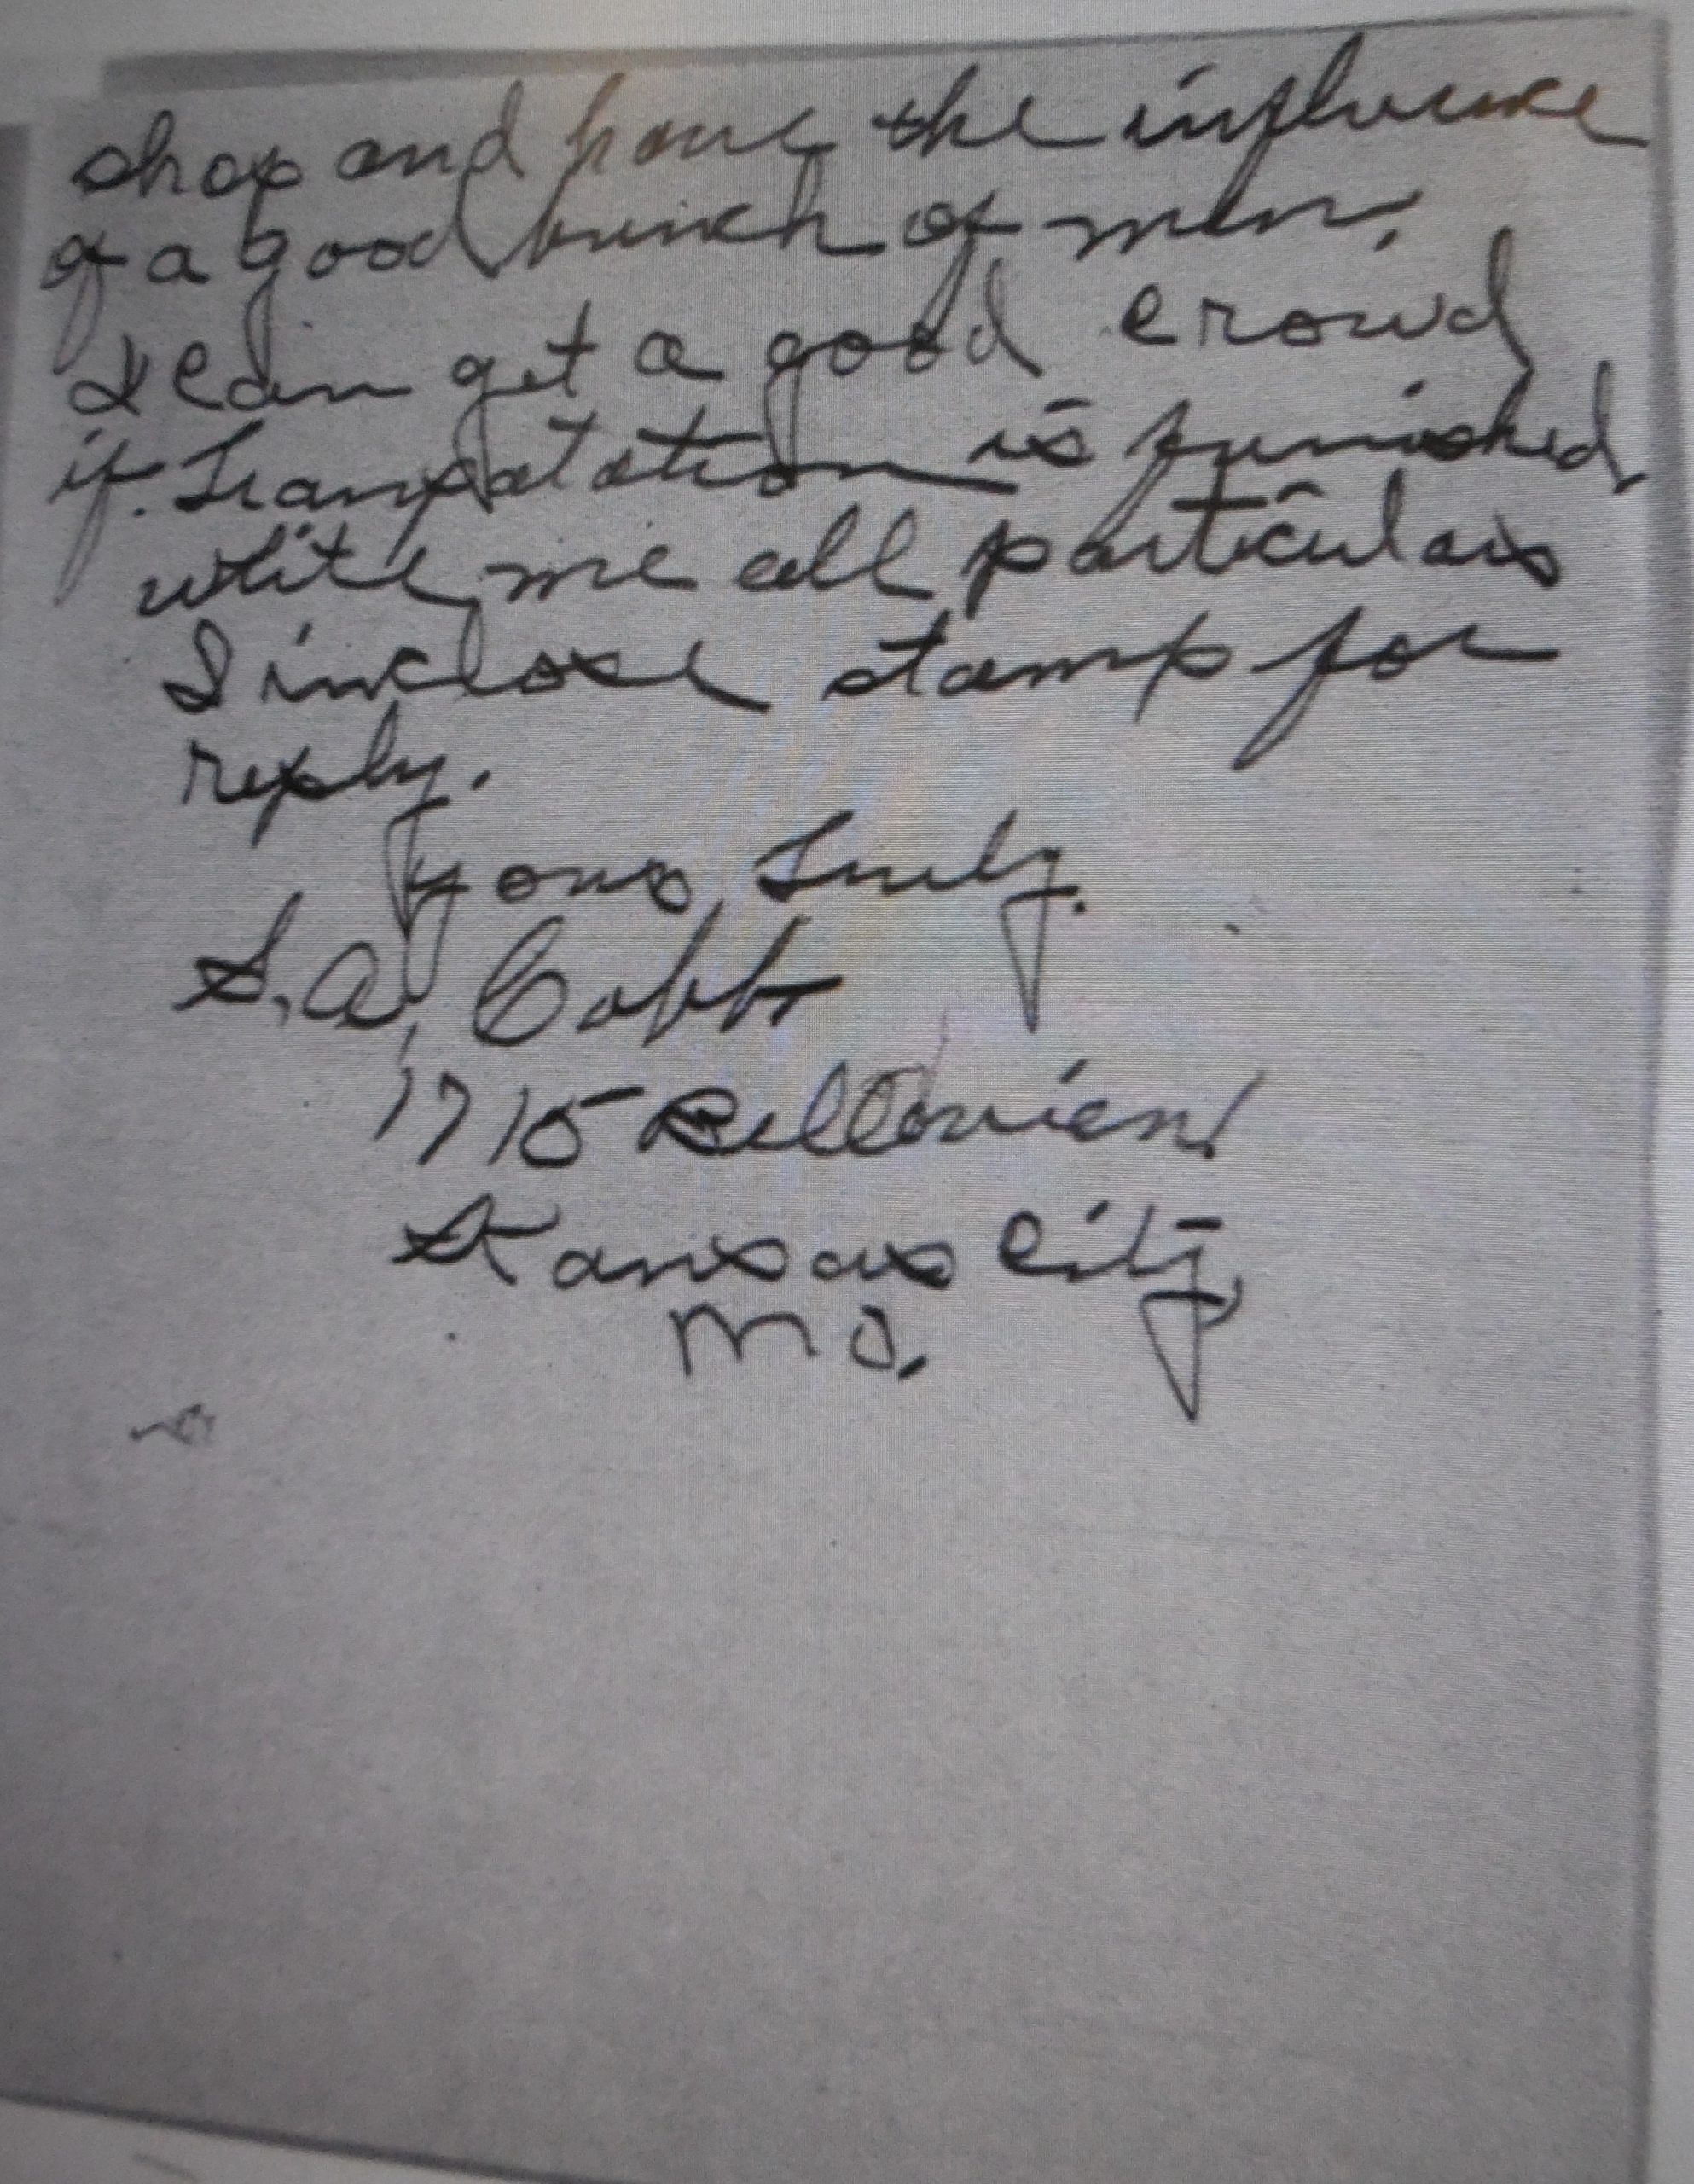 shop and have the influence
of a good bunch of men.
I can get a good crowd
if. Tranpotation is furnished
write me all particulars
I inclose stamp for
reply.
yours Truly.
S. A. Cobb
1715 Bellview
Kansas City,
Mo.